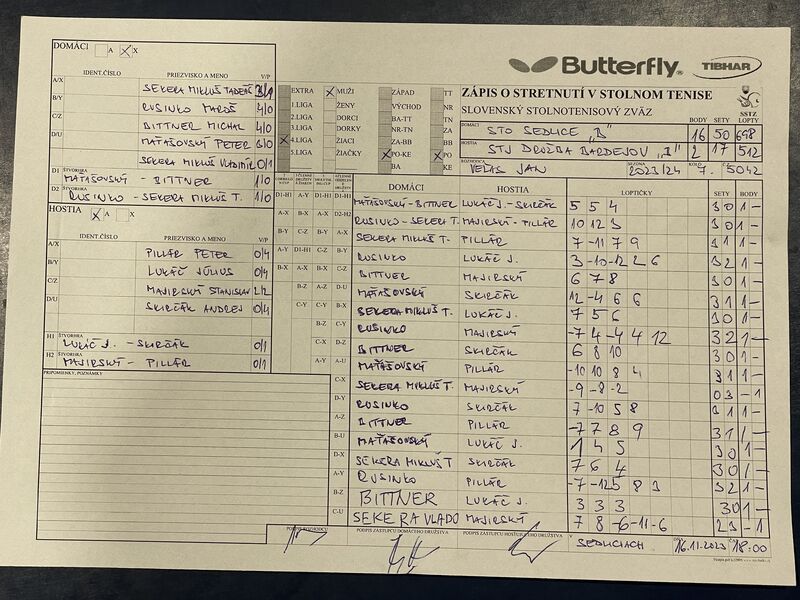 DOMÁCI A X X
Butterfly
TIBHAR
IDENT.ČÍSLO PRIEZVISKO A MENO V/P
ZÁPIS O STRETNUTÍ V STOLNOM TENISE
SLOVENSKÝ STOLNOTENISOVÝ ZVÄZ
SSTZ
BODY SETY LOPTY
A/X SEKERA MIKLUŠ TADEÁŠ 3/1
B/Y RUSINKO MAROŠ 4/0
C/Z BITTNER MICHAL 4/0
D/U MAŤAŠOVSKÝ PETER
SEKERA MIKLUŠ VLADIMÍR 0/1
D1 ŠTVORHRA MAŤAŠOVSKÝ - BITTNER 1/0
D2 RUSINKO - SEKERA MIKLUŠ T. 1/0
EXTRA X MUŽI ZÁPAD TT
1.LIGA ŽENY VÝCHOD NR
2.LIGA DORCI BA-TT TN
3.LIGA DORKY NR-TN ZA
X 4.LIGA ŽIACI ZA-BB BB
5.LIGA ŽIAČKY X PO-KE X PO
BA KE
DOMÁCI STO SEDLICE „B" 16 50 698
HOSTIA STJ DRUŽBA BARDEJOV „B" 2 17 512
ROZHODCA VELAS JÁN SEZÓNA 2023/24 KOLO 7. Č.Z. 5042
HOSTIA X A X
IDENT.ČÍSLO PRIEZVISKO A MENO V/P
A/X PILLÁR PETER 0/4
B/Y LUKÁČ JÚLIUS 0/4
C/Z MAJIRSKÝ STANISLAV 2/2
D/U SKIRČÁK ANDREJ 0/4
H1 ŠTVORHRA LUKÁČ J. - SKIRČÁK 0/1
H2 ŠTVORHRA MAJIRSKÝ - PILLÁR 0/1
PRIPOMIENKY, POZNÁMKY
DOMÁCI HOSTIA LOPTIČKY SETY BODY
D1-H1 A-Y D1-H1 D1-H1 MAŤAŠOVSKÝ - BITTNER LUKÁČ J. - SKIRČÁK 5 5 4 3 0 1 -
A-X B-X A-X D2-H2 RUSINKO - SEKERA T. MAJIRSKÝ - PILLÁR 10 12 3 3 0 1 -
B-Y C-Z B-Y A-X SEKERA MIKLUŠ T. PILLÁR 7 -11 7 9 3 1 1 -
A-Y D1-H1 C-Z B-Y RUSINKO LUKÁČ J. 3 -10 -12 2 6 3 2 1 -
B-X A-X B-X C-Z BITTNER MAJIRSKÝ 6 7 8 3 0 1 -
B-Z A-Z D-U MAŤAŠOVSKÝ SKIRČÁK 12 -4 6 6 3 1 1 -
C-Y C-Y B-X SEKERA MIKLUŠ T. LUKÁČ J. 7 5 6 3 0 1 -
B-Z C-Y RUSINKO MAJIRSKÝ -7 4 -4 4 12 3 2 1 -
C-X D-Z BITTNER SKIRČÁK 6 8 10 3 0 1 -
A-Y A-U MAŤAŠOVSKÝ PILLÁR -10 10 8 4 3 1 1 -
C-X SEKERA MIKLUŠ T. MAJIRSKÝ -9 -8 -2 0 3 - 1
D-Y RUSINKO SKIRČÁK 7 -10 5 8 3 1 1 -
A-Z BITTNER PILLÁR -7 7 8 9 3 1 1 -
B-U MAŤAŠOVSKÝ LUKÁČ J. 1 4 5 3 0 1 -
D-X SEKERA MIKLUŠ T SKIRČÁK 7 6 4 3 0 1 -
A-Y RUSINKO PILLÁR -7 -12 5 8 3 3 2 1 -
B-Z BITTNER LUKÁČ J. 3 3 3 3 0 1 -
C-U SEKERA VLADO MAJIRSKÝ 7 8 -6 -11 -6 2 3 - 1
PODPIS ROZHODCU PODPIS ZÁSTUPCU DOMÁCEHO DRUŽSTVA PODPIS ZÁSTUPCU HOSŤUJÚCEHO DRUŽSTVA
V SEDLICIACH DŇA 16.11.2023 ČAS 18:00